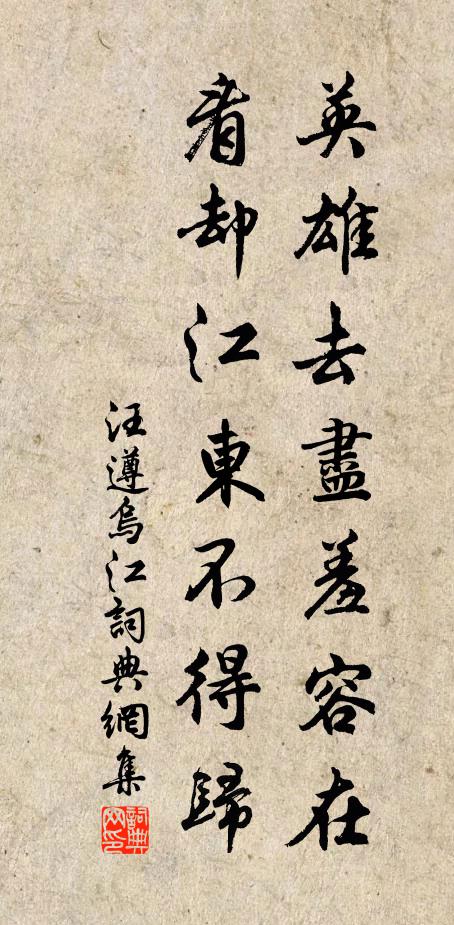 英雄去盡羞容在
看却江東不得歸
汪遵烏江詞典網集
詞典網印